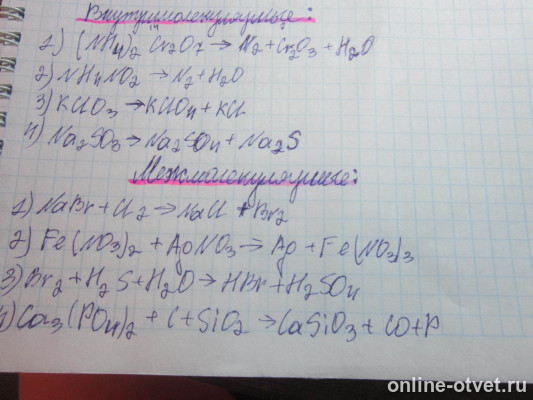 Внутримолекулярные:
1) (NH4)2 Cr2O7 → N2 + Cr2O3 + H2O
2) NH4NO2 → N2 + H2O
3) KClO3 → KClO4 + KCl
4) Na2SO3 → Na2SO4 + Na2S
Межмолекулярные:
1) NaBr + Cl2 → NaCl + Br2
2) Fe(NO3)2 + AgNO3 → Ag + Fe(NO3)3
3) Br2 + H2S + H2O → HBr + H2SO4
4) Ca3(PO4)2 + C + SiO2 → CaSiO3 + CO + P
online-otvet.ru